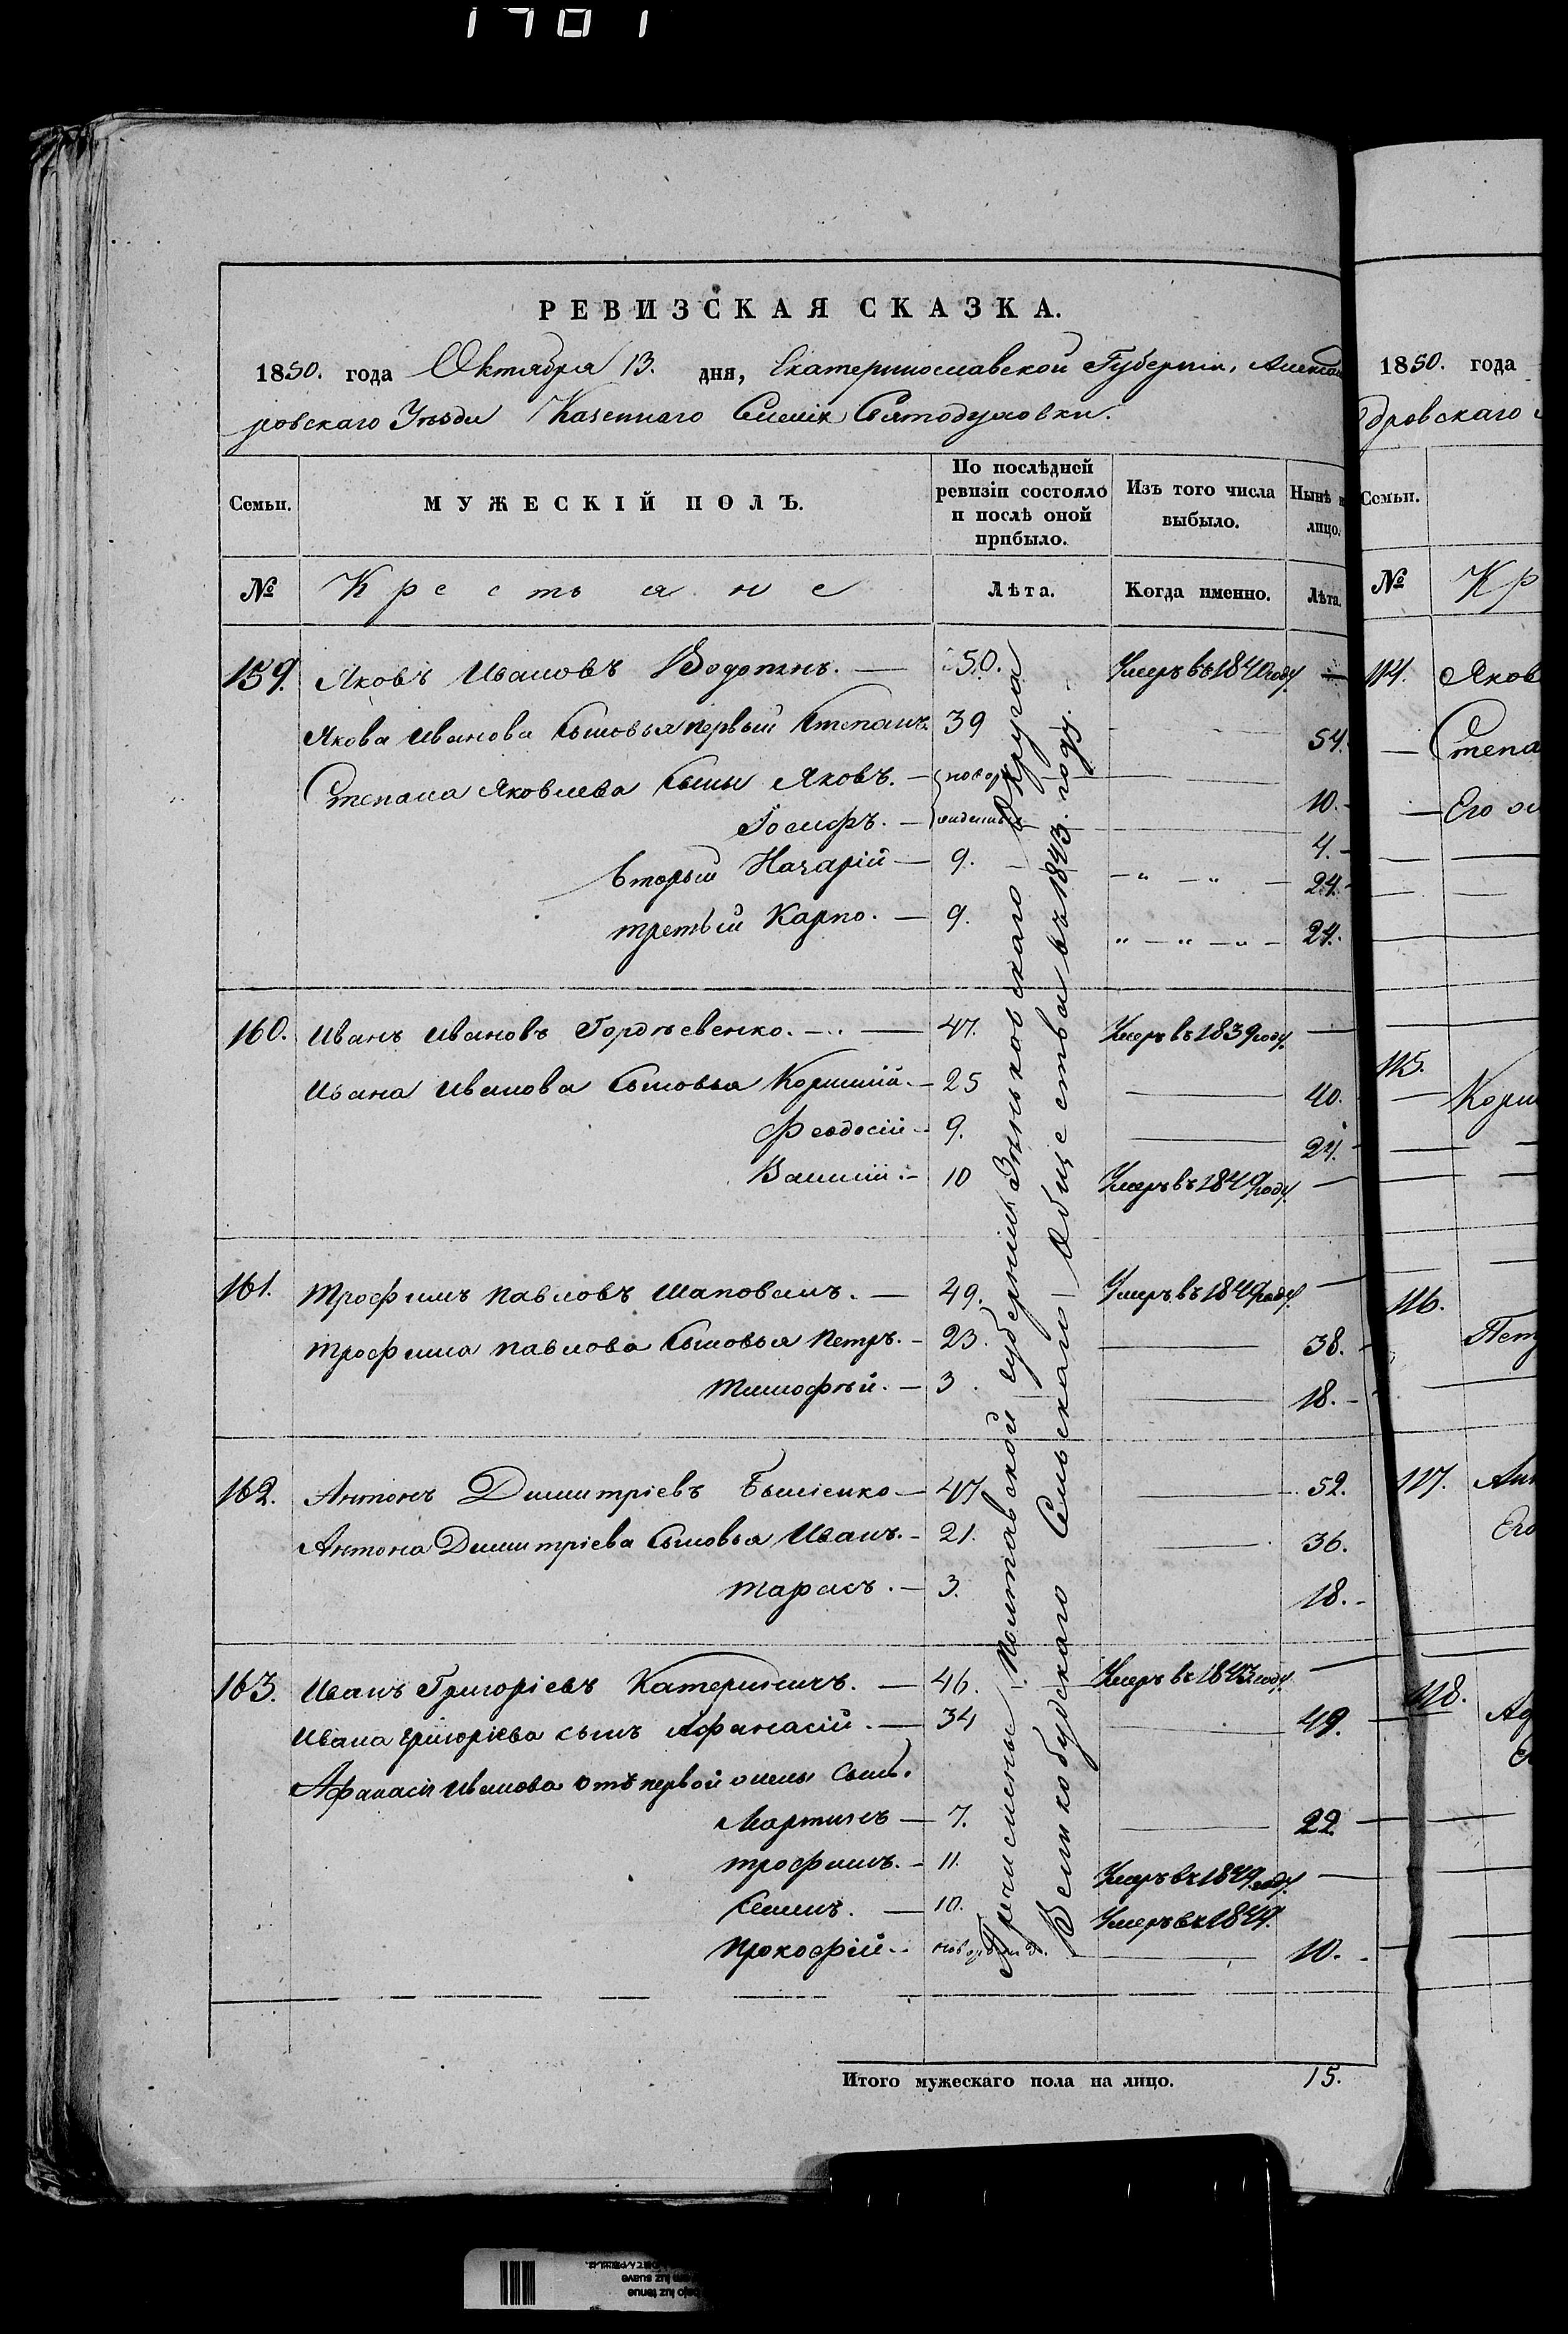 1701
РЕВИЗСКАЯ СКАЗКА.
1850. года Октября 13. дня, Екатеринославской Губерніи, Алексан
ровскаго Уѣзда Казеннаго Селенія Святодуховки.
Семьи.
МУЖЕСКІЙ ПОЛЪ.
По послѣдней ревизіи состояло и послѣ оной прибыло.
Изъ того числа выбыло.
Нынѣ н лицо.
№ Крестьяне Лѣта. Когда именно. Лѣта.
159. Яковъ Ивановъ — 50. Умеръ въ 1840 году —
Якова Иванова Сыновья первый Степанъ 39 — 54.
Степана Яковлева Сыны Яковъ. — новоро — 10.
Іосифъ. — жденные — 4.
вторый Назарій — 9. — " — " — 24.
третьій Карпо. — 9. " — " — " — 24.
160. Иванъ Ивановъ Гордѣевенко. — 47. Умеръ въ 1839 году. —
Ивана Иванова Сыновья Корнилій. — 25 — 40.
Феодосій — 9. — 24.
Василій. — 10 Умеръ въ 1849 году. —
161. Трофимъ Павловъ Шаповалъ. — 49. Умеръ въ 1849 году. —
Трофима Павлова Сыновья Петръ. — 23. — 38.
Тимофѣй. — 3. — 18.
162. Антонъ Димитріевъ — 47 — 52.
Антона Димитріева Сыновья Иванъ. — 21. — 36.
Тарасъ. — 3. 18.
163. Иванъ Григоріевъ — 46. Умеръ въ 1843 году. —
Ивана Григоріева сынъ Афанасій. — 34 — 49.
Афанасія Иванова отъ первой жены Сынъ.
Мартинъ — 7. — 22
Трофимъ. — 11. Умеръ въ 1849 году. —
Семенъ. — 10. Умеръ въ 1849.
Прокофій. — новорожд. — 10.
Причислены Полтавской губерніи Зѣньковскаго Округа
Великобудскаго Сельскаго Общества въ 1843. году.
Итого мужескаго пола на лицо. 15.
1850. года
дровскаго
Семьи.
№ Кр
114. Яков
— Степа
— Его
115. Корн
116. Пет
117. Ан
Его
118. Аф